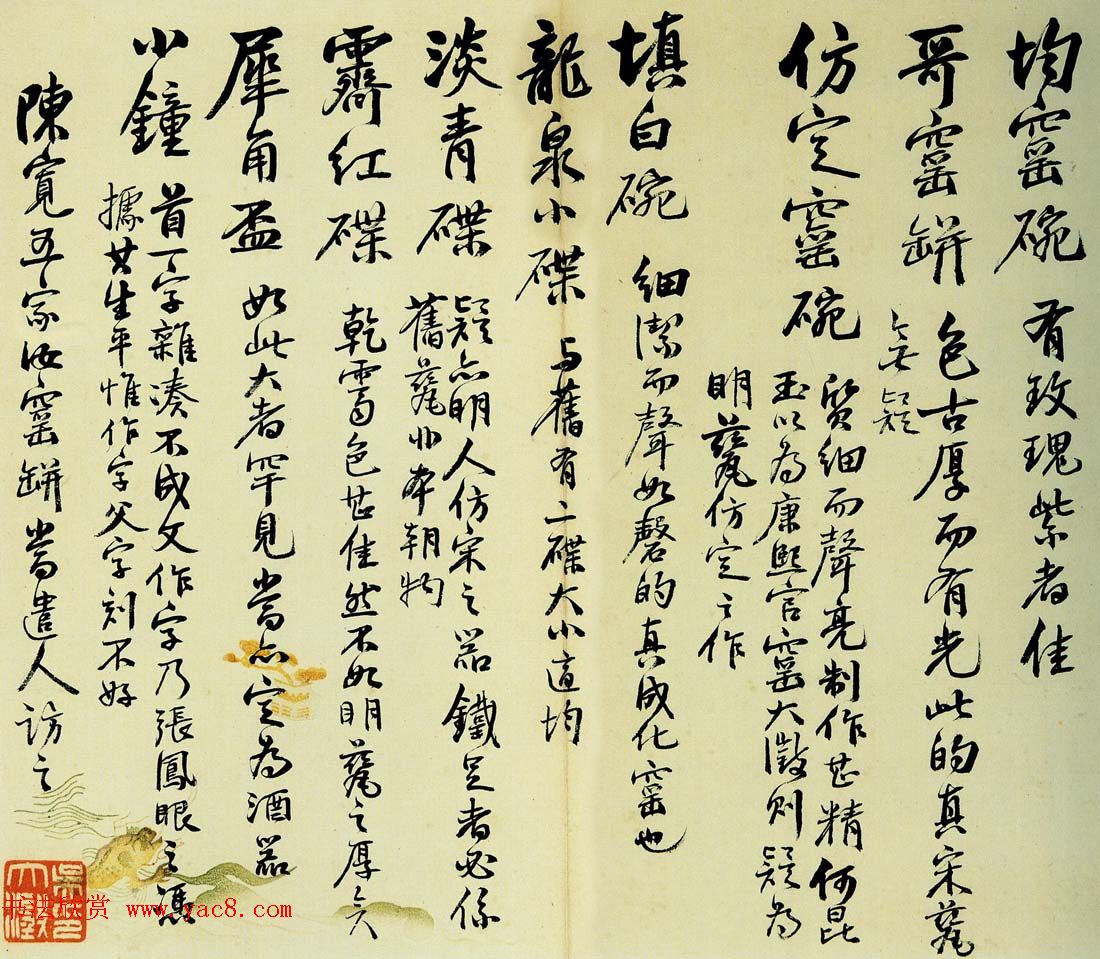 均窰碗 有玫瑰紫者佳
哥窰缾 色古厚而有光此的真宋甆
無疑
仿定窰碗 質細而聲亮制作甚精何昆
玉以為康熙官窰大澂則疑為
明甆仿定之作
填白碗 細潔而聲如磬的真成化窰也
龍泉小碟 与舊有二碟大小適均
淡青碟 疑亦明人仿宋之器鐵足者必係
舊甆非本朝物
霽紅碟 乾色甚佳然不如明甆之厚矣
犀角盃 如此大者罕見當亦定為酒器
小鐘 首一字雜湊不成文作字乃張鳳眼之憑
據其生平惟作字父字刻不好
陳寬五家汝窰缾當遣人訪之
书法欣赏 www.yac8.com